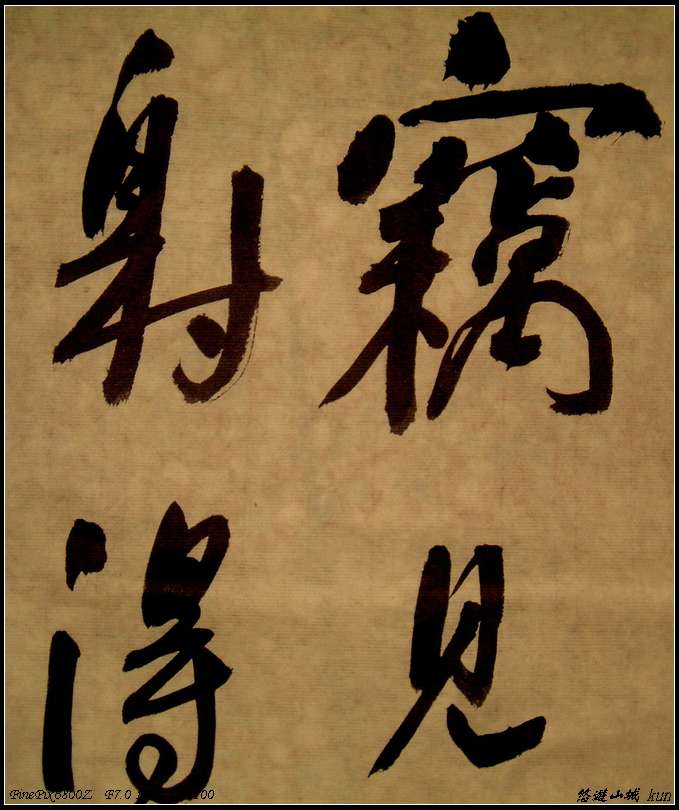 竊見
射得
FinePix6800Z F7.0
悠遊山城 kun